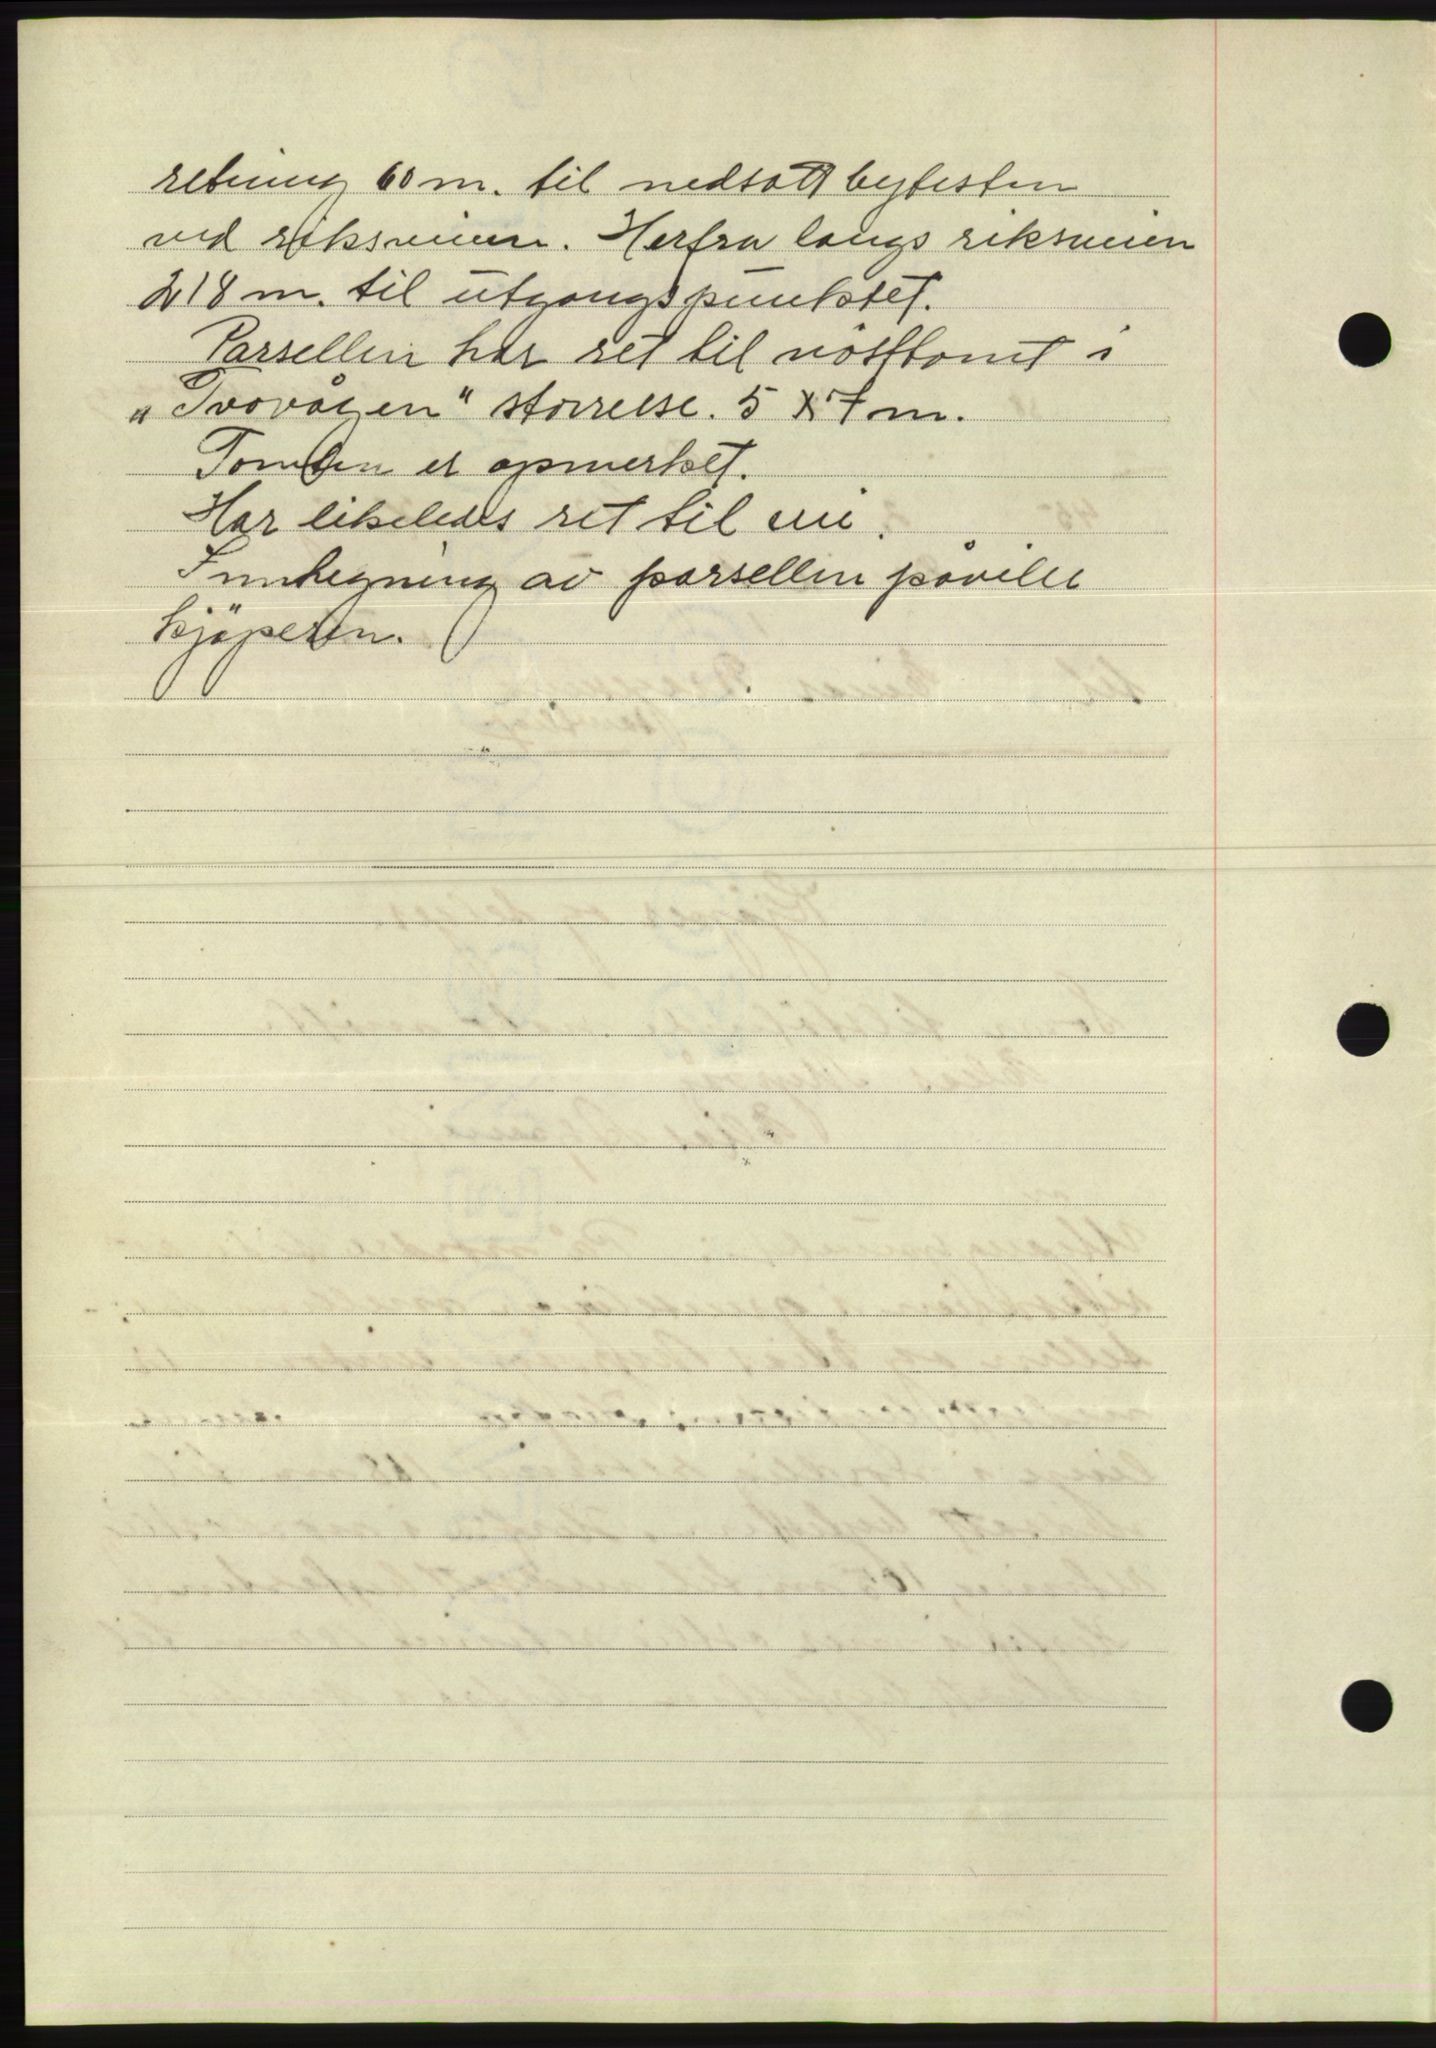 retning 60 m. til nedsatt bytesten
ved riksveien. Herfra langs riksveien
218 m. til utgangspunktet.
Parsellen har ret til nösttomt i
"Tvovågen" störrelse. 5 x 7 m.
Tomten er opmerket.
Har likeledes ret til vei.
Innhegning av parsellen påviler
kjöperen.